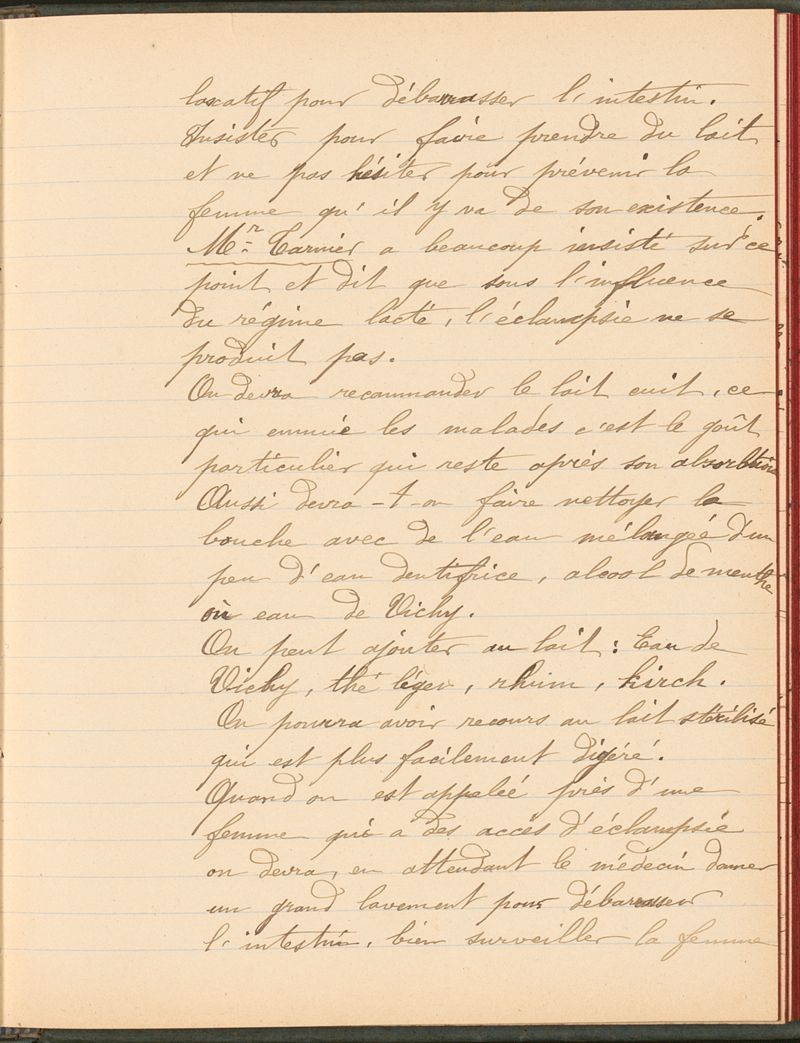 laxatif pour débarrasser l'intestin.
Insister pour faire prendre du lait
et ne pas hésiter pour prévenir la
femme qu'il y va de son existence.
Mr. Tarnier a beaucoup insisté sur ce
point et dit que sous l'influence
du régime lacté, l'éclampsie ne se
produit pas.
On devra recommander le lait cuit, ce
qui ennuie les malades c'est le goût
particulier qui reste après son absorbtion
Aussi devra-t-on faire nettoyer la
bouche avec de l'eau mélangée d'un
peu d'eau dentifrice, alcool de menthe
où eau de Vichy.
On peut ajouter au lait : Eau de
Vichy, thé léger, rhum, kirch.
On pourra avoir recours au lait stérilisé
qui est plus facilement digéré.
Quand on est appelée près d'une
femme qui a des accès d'éclampsie
on devra, en attendant le médecin donner
un grand lavement pour débarrasser
l'intestin, bien surveiller la femme